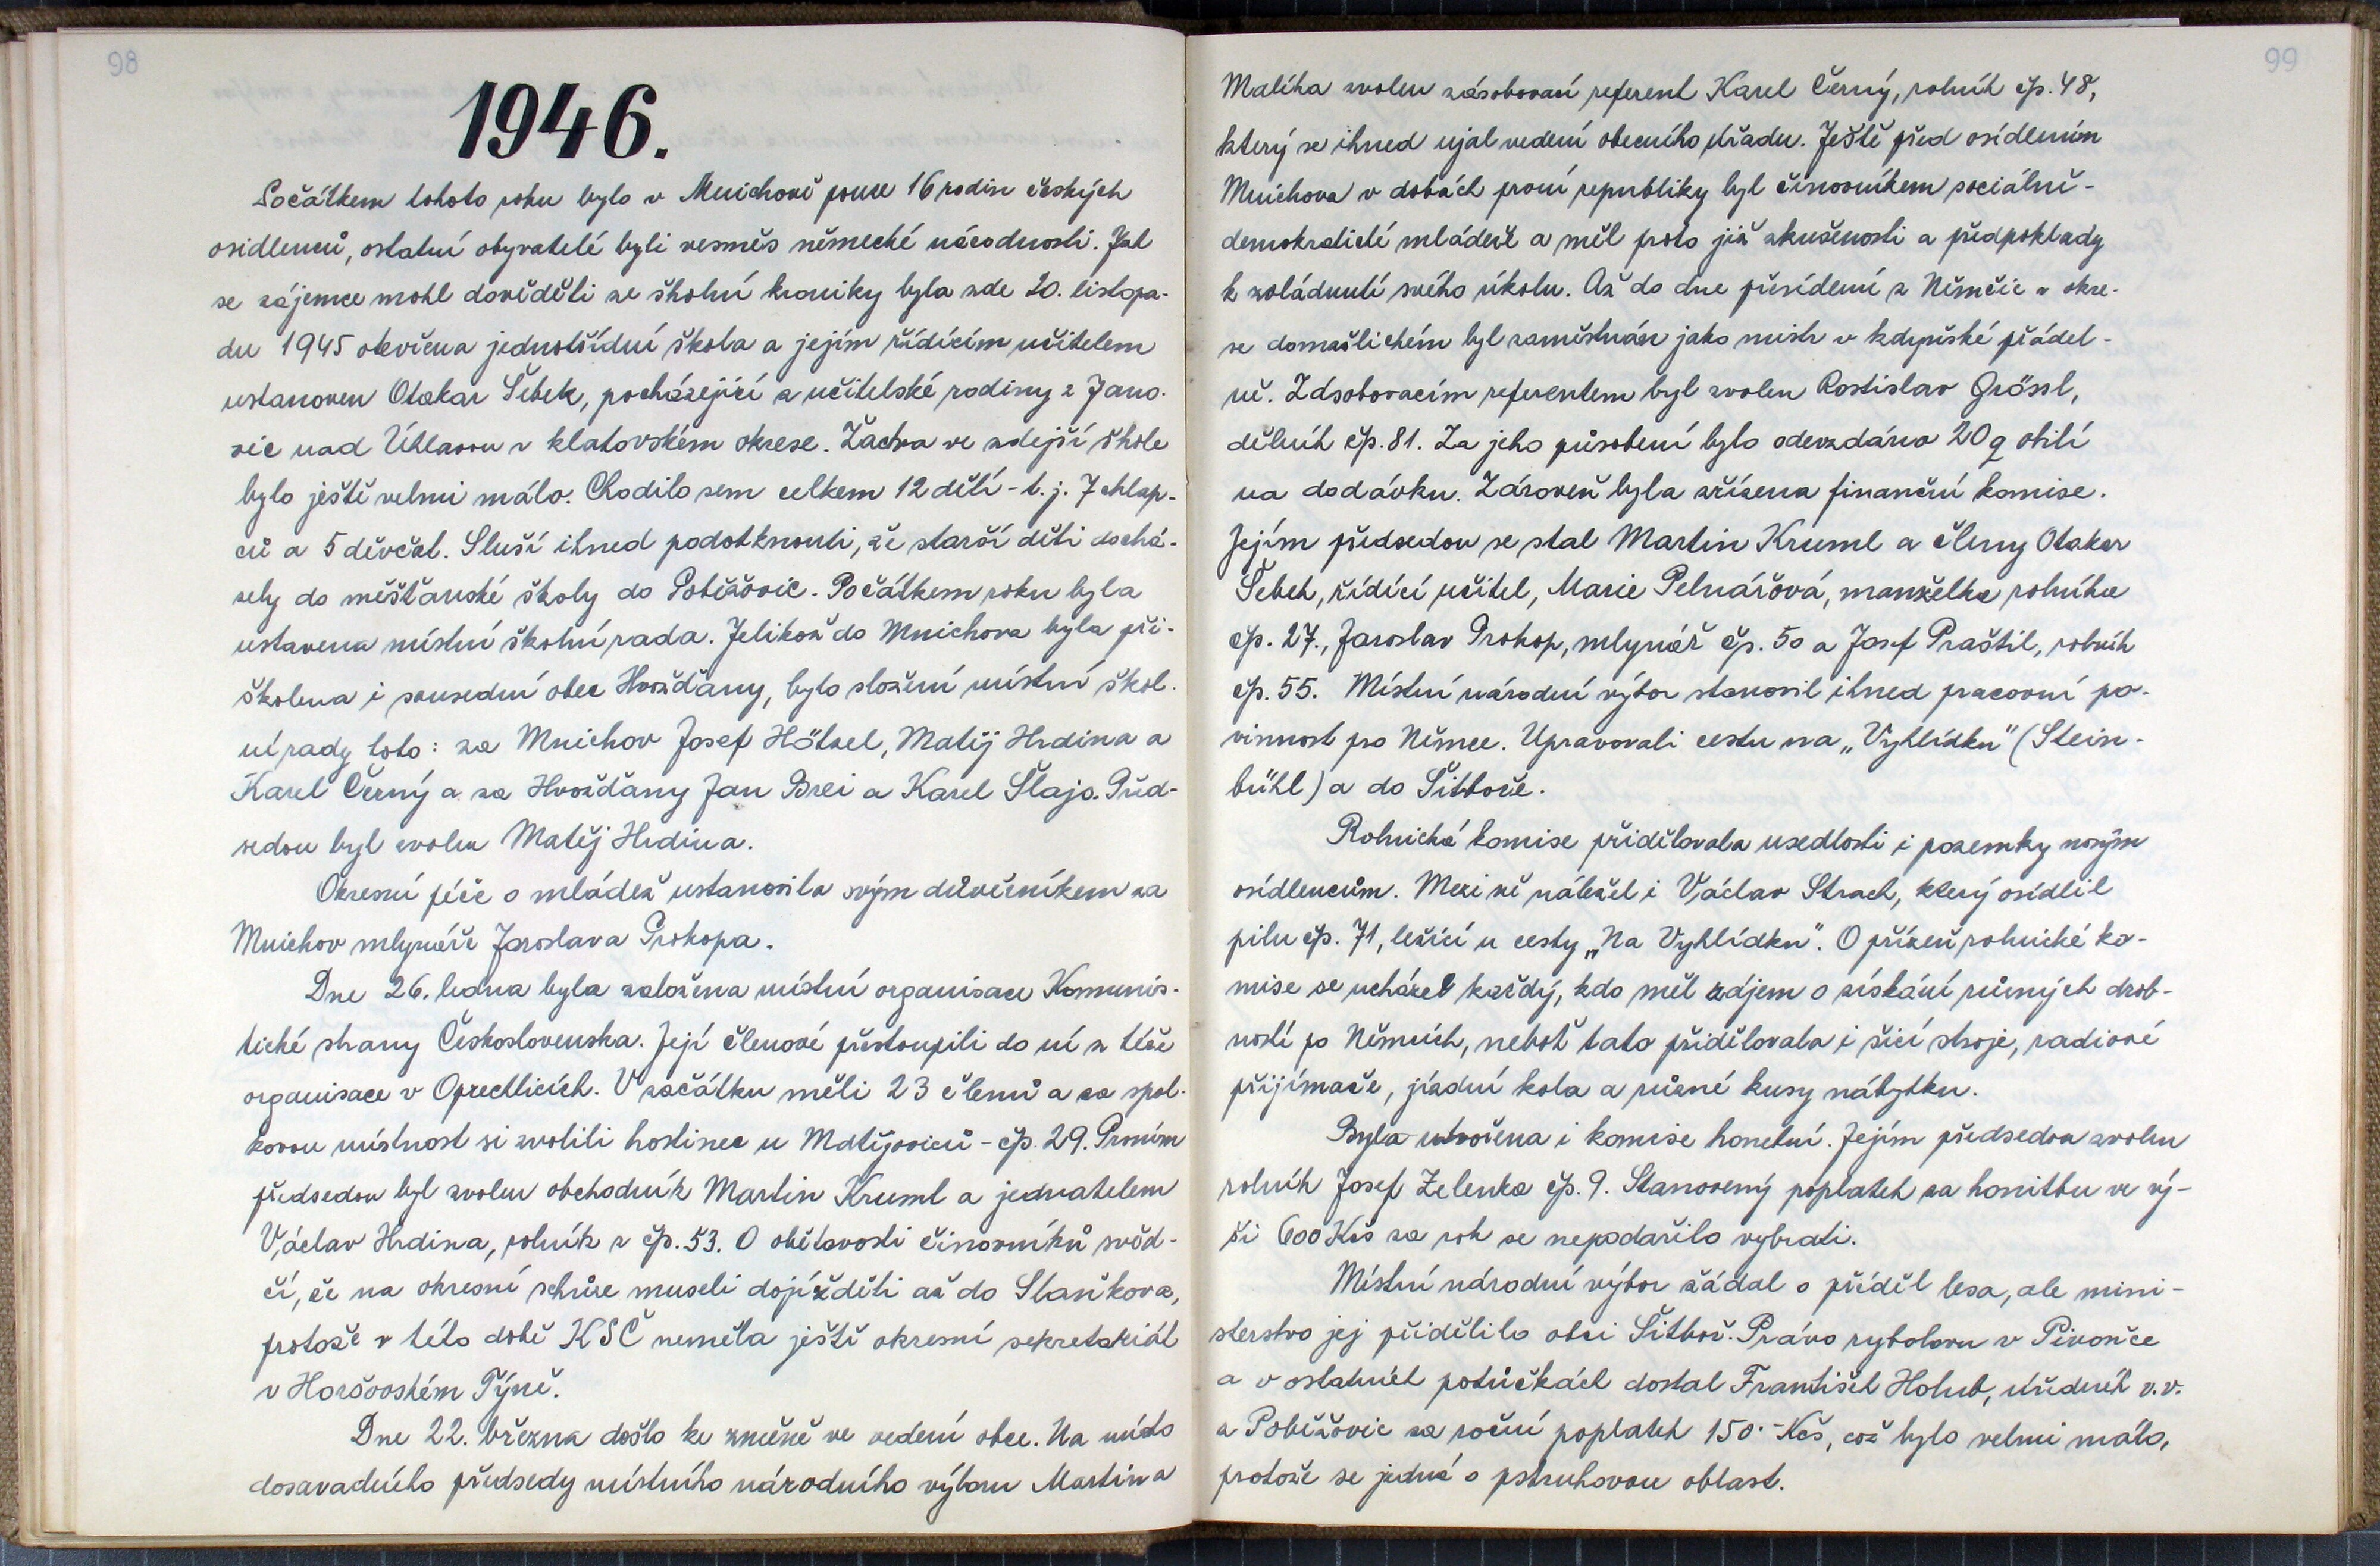 98
1946.
Počátkem tohoto roku bylo v Mnichově pouze 16 rodin českých
osidlenců, ostatní obyvatelé byli vesměs německé národnosti. Jak
se zájemce mohl dověděti ze školní kroniky byla zde 20. listopa-
du 1945 otevřena jednotřídní škola a jejím řídícím učitelem
ustanoven Otakar Šebek, pocházející z učitelské rodiny z Jano-
vic nad Úhlavou v klatovském okrese. Žactva ve zdejší škole
bylo ještě velmi málo. Chodilo sem celkem 12 dětí - t. j. 7 chlap-
ců a 5 děvčat. Sluší ihned podotknouti, že starší děti dochá-
zely do měšťanské školy do Poběžovic. Počátkem roku byla
ustavena místní školní rada. Jelikož do Mnichova byla při-
školena i sousední obec Hvožďany, bylo složení místní škol-
ní rady toto: za Mnichov Josef Hötzel, Matěj Hrdina a
Karel Černý a za Hvožďany Jan Brei a Karel Šlajs. Před-
sedou byl zvolen Matěj Hrdina.
Okresní péče o mládež ustanovila svým důvěrníkem za
Mnichov mlynáře Jaroslava Prokopa.
Dne 26. ledna byla založena místní organisace Komunis-
tické strany Československa. Její členové přestoupili do ní z téže
organisace v Oprechticích. V začátku měli 23 členů a za spol-
kovou místnost si zvolili hostinec u Matějoviců - čp. 29. Prvním
předsedou byl zvolen obchodník Martin Kruml a jednatelem
Václav Hrdina, rolník z čp. 53. O obětavosti činovníků svěd-
čí, že na okresní schůze museli dojížděti až do Staňkova,
protože v této době KSČ neměla ještě okresní sekretariát
v Horšovském Týně.
Dne 22. března došlo ke změně ve vedení obce. Na místo
dosavadního předsedy místního národního výboru Martina
99
Maliha zvolen zásobovaní referent Karel Černý, rolník čp. 48,
který se ihned ujal vedení obecního úřadu. Ještě před osídlením
Mnichova v dobách první republiky byl činovníkem sociálně-
demokratické mládeže a měl proto již zkušenosti a předpoklady
k zvládnutí svého úkolu. Až do dne přesídlení z Němčic v okre-
se domažlickém byl zaměstnán jako mistr v kdyňské přádel-
ně. Zásobovacím referentem byl zvolen Rostislav Grössl,
dělník čp. 81. Za jeho působení bylo odevzdáno 20 q obilí
na dodávku. Zároveň byla zřízena finanční komise.
Jejím předsedou se stal Martin Kruml a členy Otakar
Šebek, řídící učitel, Marie Pelnářová, manželka rolníka
čp. 27., Jaroslav Prokop, mlynář čp. 50 a Josef Praštil, rolník
čp. 55. Místní národní výbor stanovil ihned pracovní po-
vinnost pro Němce. Upravovali cestu na „Vyhlídku" (Stein-
bühl) a do Šitboře.
Rolnická komise přidělovala usedlosti i pozemky novým
osídlencům. Mezi ně náležel i Václav Strach, který osídlil
pilu čp. 71, ležící u cesty „Na Vyhlídku". O přízeň rolnické ko-
mise se ucházel každý, kdo měl zájem o získání různých drob-
ností po Němcích, neboť tato přidělovala i šicí stroje, radiové
přijímače, jízdní kola a různé kusy nábytku.
Byla utvořena i komise honební. Jejím předsedou zvolen
rolník Josef Zelenka čp. 9. Stanovený poplatek za honitbu ve vý-
ši 600 Kčs za rok se nepodařilo vybrati.
Místní národní výbor žádal o příděl lesa, ale mini-
sterstvo jej přidělilo obci Šitboř. Právo rybolovu v Pivoňce
a v ostatních potůčkách dostal František Holub, úředník v. v.
z Poběžovic za roční poplatek 150.- Kčs, což bylo velmi málo,
protože se jedná o pstruhovou oblast.